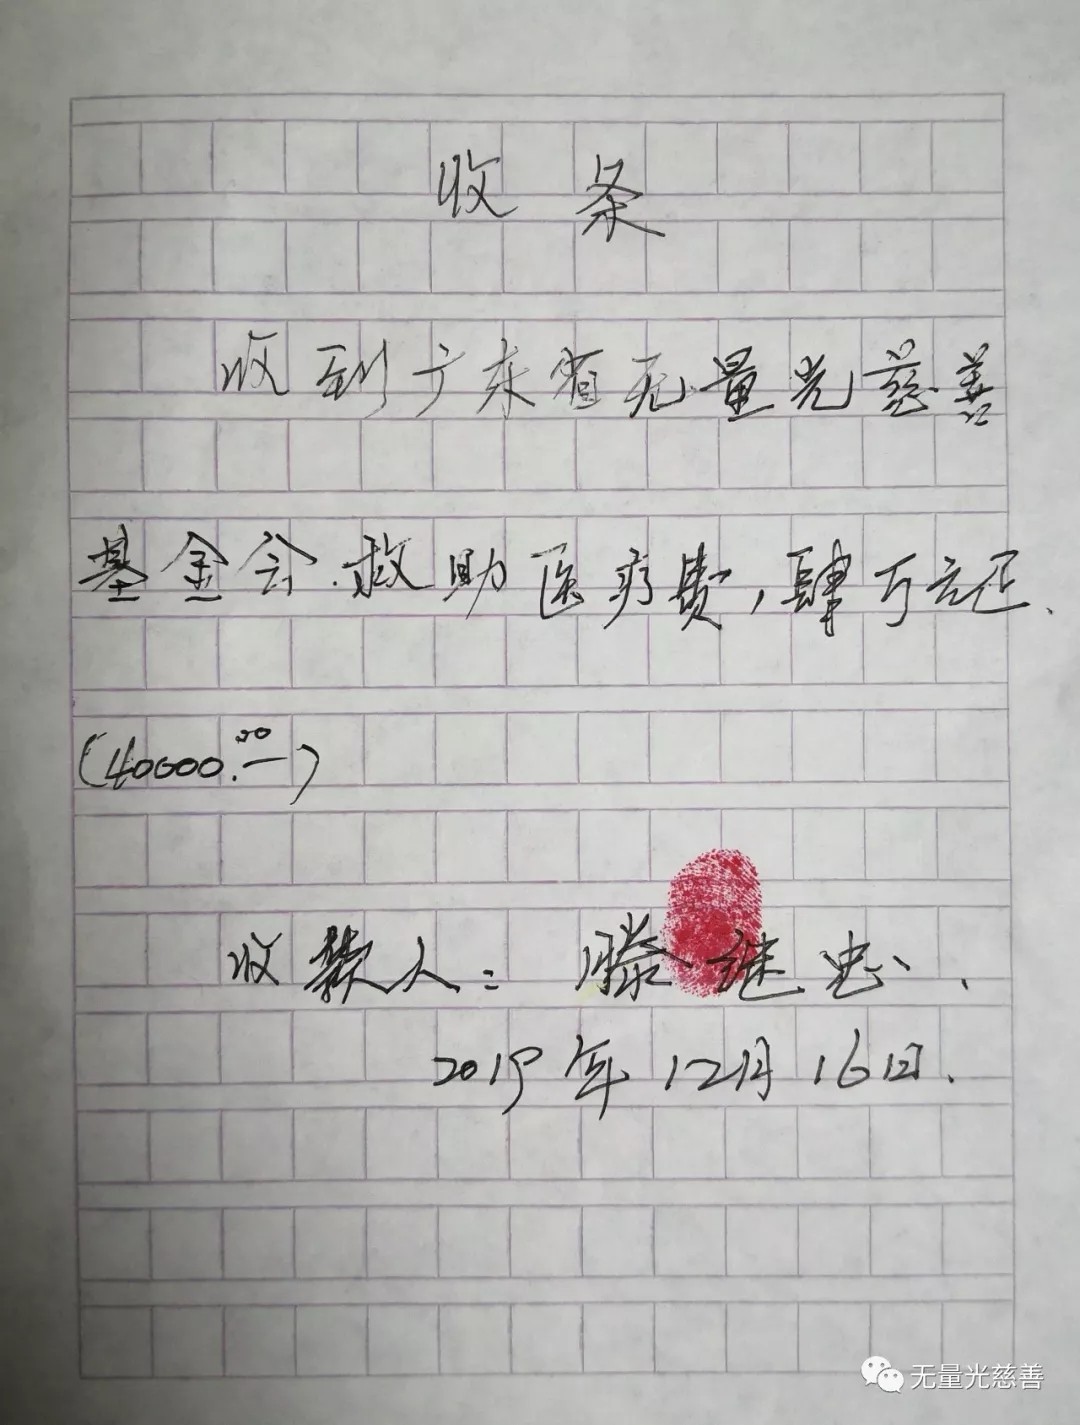 收条
收到广东省无量光慈善
基金会.救助医疗费,肆万元正.
(40000.00)
收款人:滕继忠.
2019年12月16日.
无量光慈善